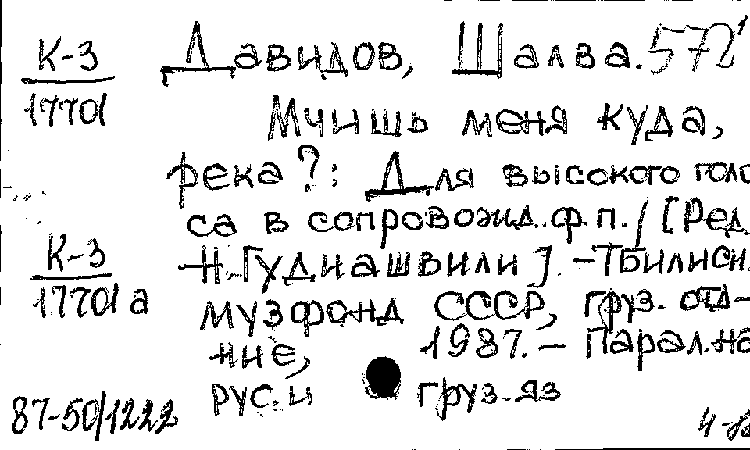 К-3 Давидов, Шалва. 572'
17701 Мчишь меня куда,
река?: Для высокого голо
са в сопровожд. ф.п. / [Ред.
К-3 Н. Гудиашвили]. - Тбилиси.
17701 а Музфонд СССР, груз. отд-
ние, 1987. - Парал. на
рус. и груз. яз
87-50/1222